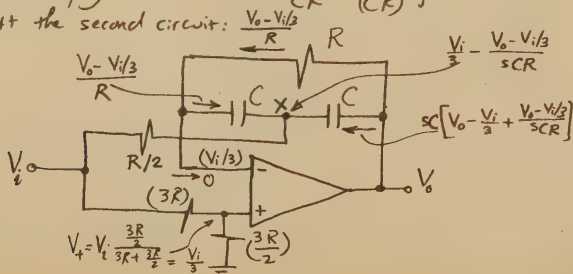 CR (CR) S
the second circuit: Vo-Vi/3 / R
R
Vi/3 - Vo-Vi/3 / SCR
Vo-Vi/3 / R
C
X
C
SC[Vo-Vi/3+Vo-Vi/3 / SCR]
R/2
(Vi/3)
-
Vi
0
Vo
(3R)
+
V+=Vi 3R/2 / 3R+3R/2 = Vi/3
(3R/2)